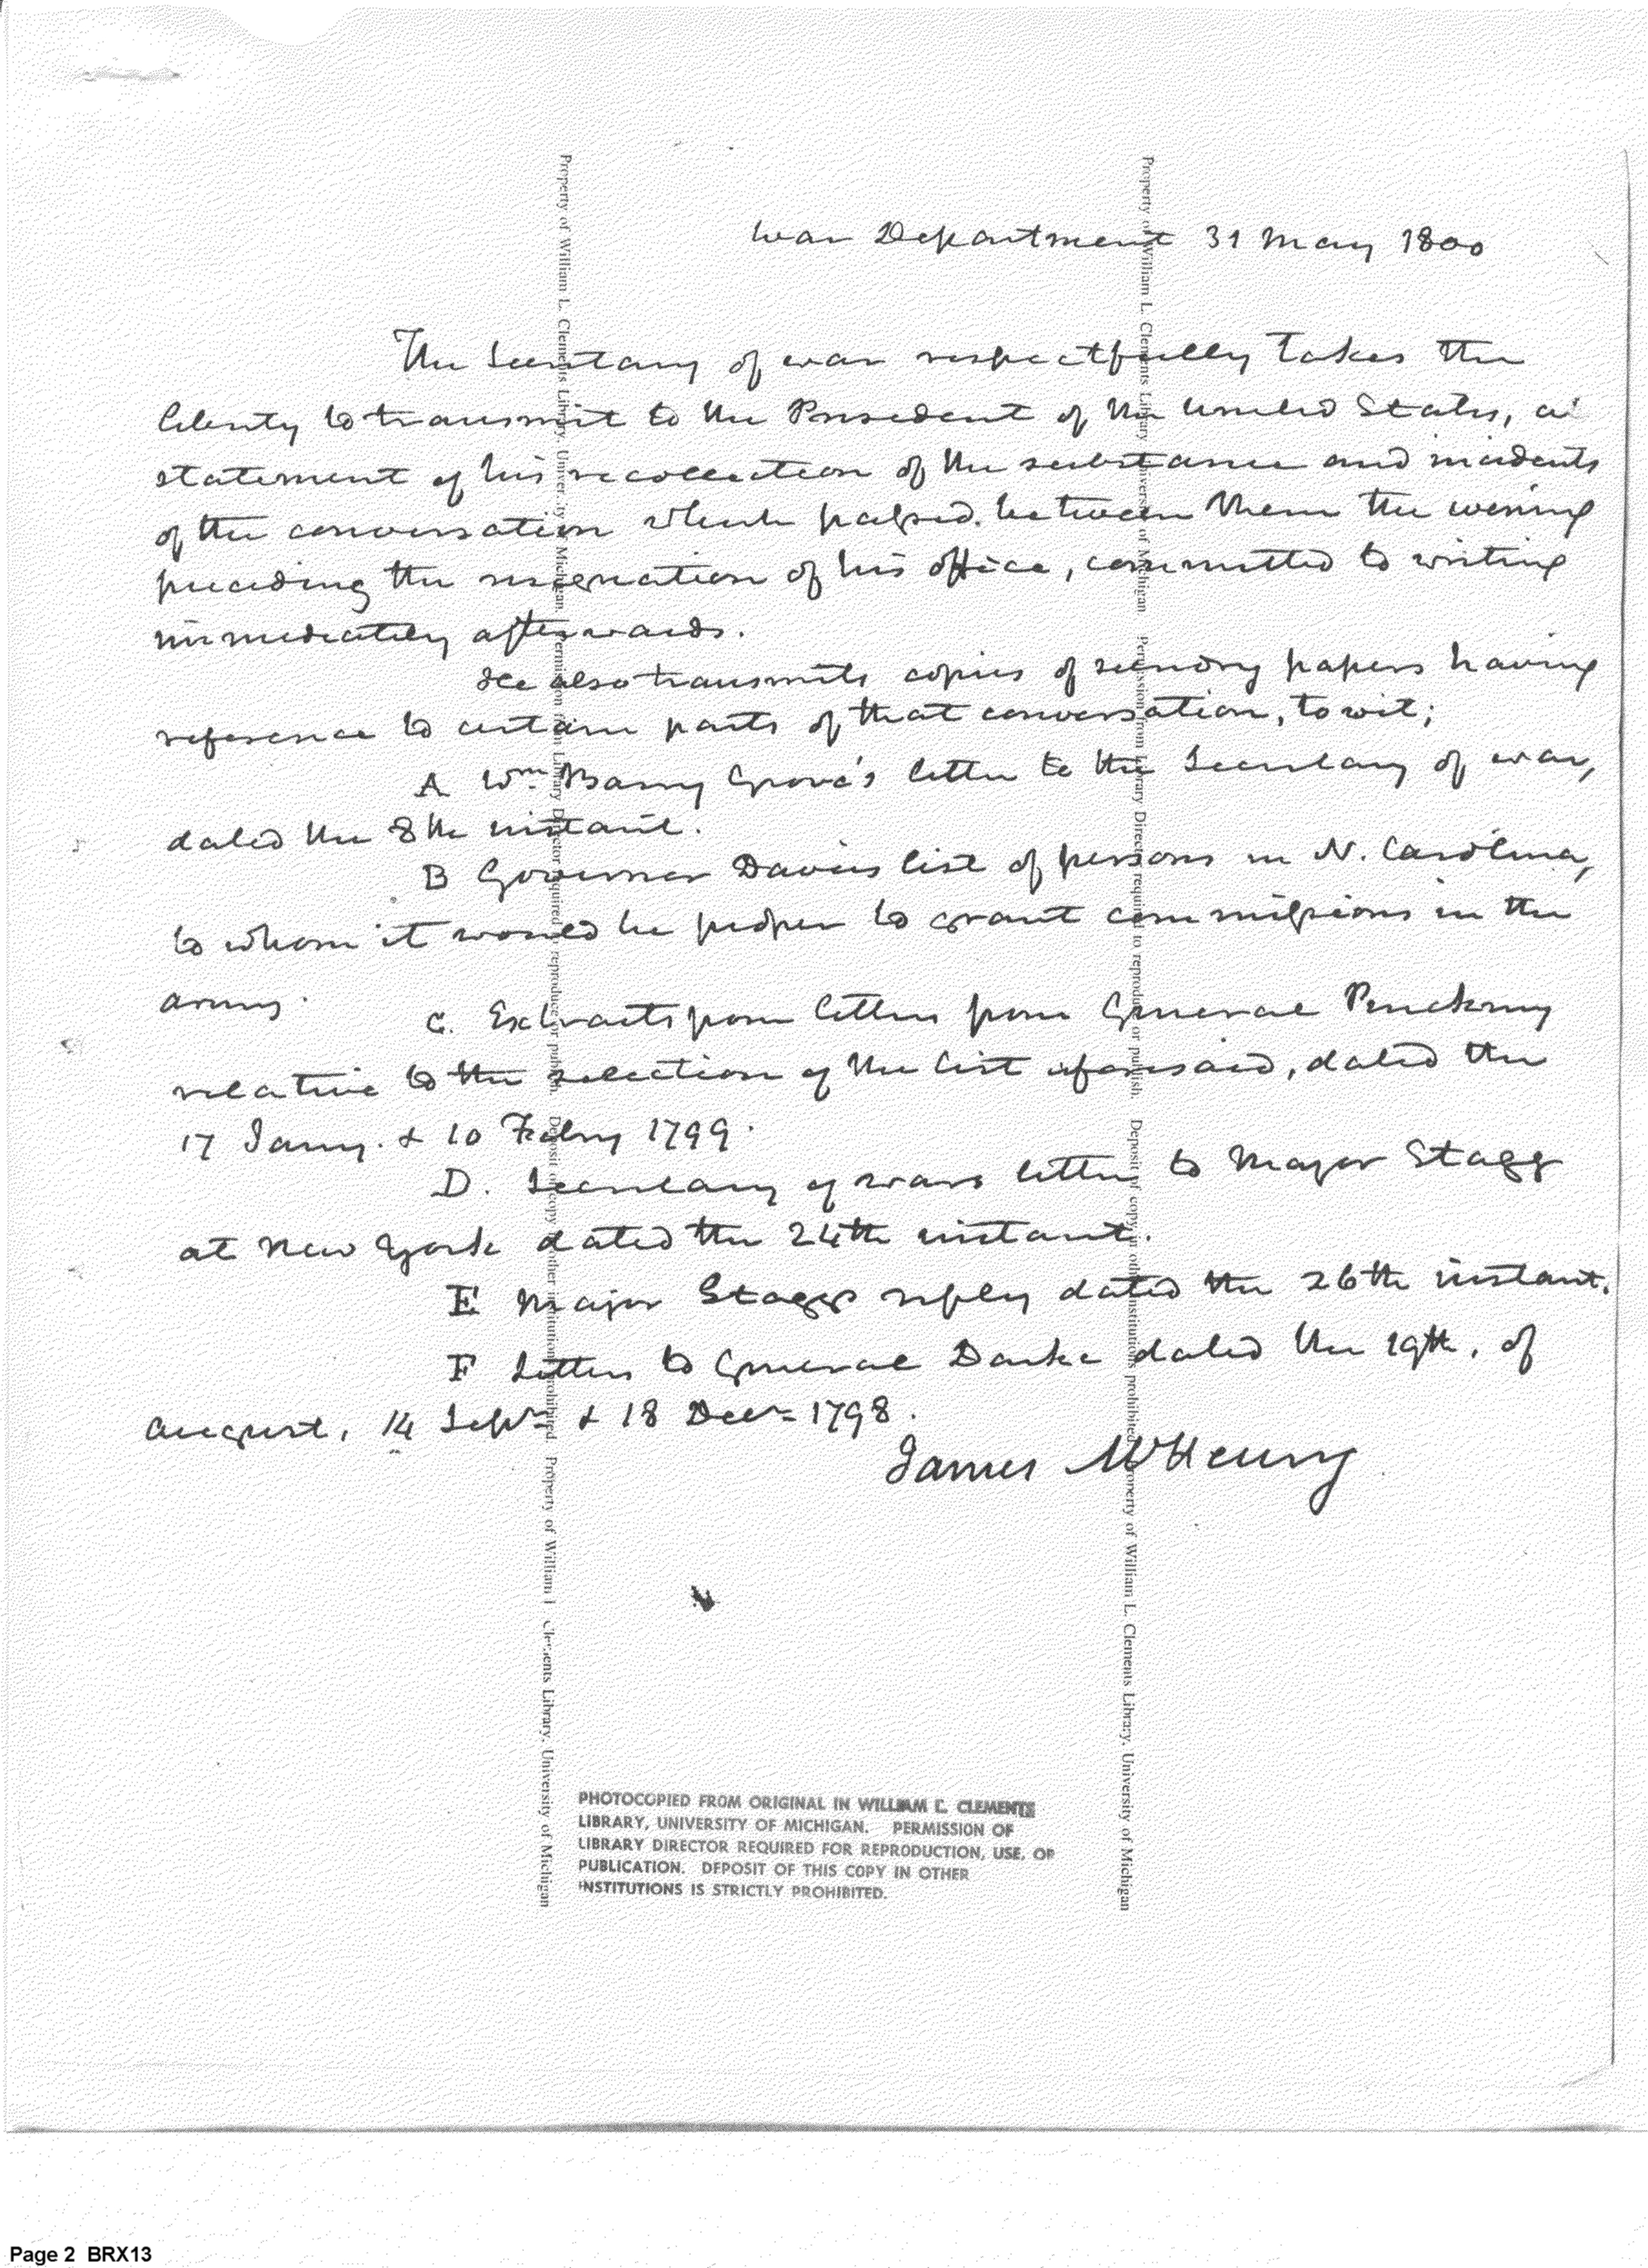 War Department 31 May 1800
The Secretary of war respectfully takes the
liberty to transmit to the President of the United States, a
statement of his recollection of the substance and incidents
of the conversation which passed between them the evening
preceding the resignation of his office, committed to writing
immediately afterwards.
He also transmits copies of sundry papers having
reference to certain parts of that conversation, to wit;
A Wm Barry Grove's letter to the Secretary of war,
dated the 8th instant.
B Governor Davies list of persons in N. Carolina,
to whom it would be proper to grant commissions in the
army.
C. Extracts from letters from General Pinckney
relative to the selection of the list aforesaid, dated the
17 Jany. & 10 Febry 1799.
D. Secretary of wars letter to Major Stagg
at New York dated the 24th instant.
E Major Staggs reply dated the 26th instant.
F Letters to General Darke dated the 19th, of
August, 14 Sepr & 18 Decr 1798.
James McHenry
Property of William L. Clements Library, University of Michigan. Permission from Library Director required to reproduce or publish. Deposit of copy in other institutions prohibited. Property of William L. Clements Library, University of Michigan
Property of William L. Clements Library, University of Michigan. Permission from Library Director required to reproduce or publish. Deposit of copy in other institutions prohibited. Property of William L. Clements Library, University of Michigan
PHOTOCOPIED FROM ORIGINAL IN WILLIAM L. CLEMENTS
LIBRARY, UNIVERSITY OF MICHIGAN. PERMISSION OF
LIBRARY DIRECTOR REQUIRED FOR REPRODUCTION, USE, OR
PUBLICATION. DEPOSIT OF THIS COPY IN OTHER
INSTITUTIONS IS STRICTLY PROHIBITED.
Page 2 BRX13